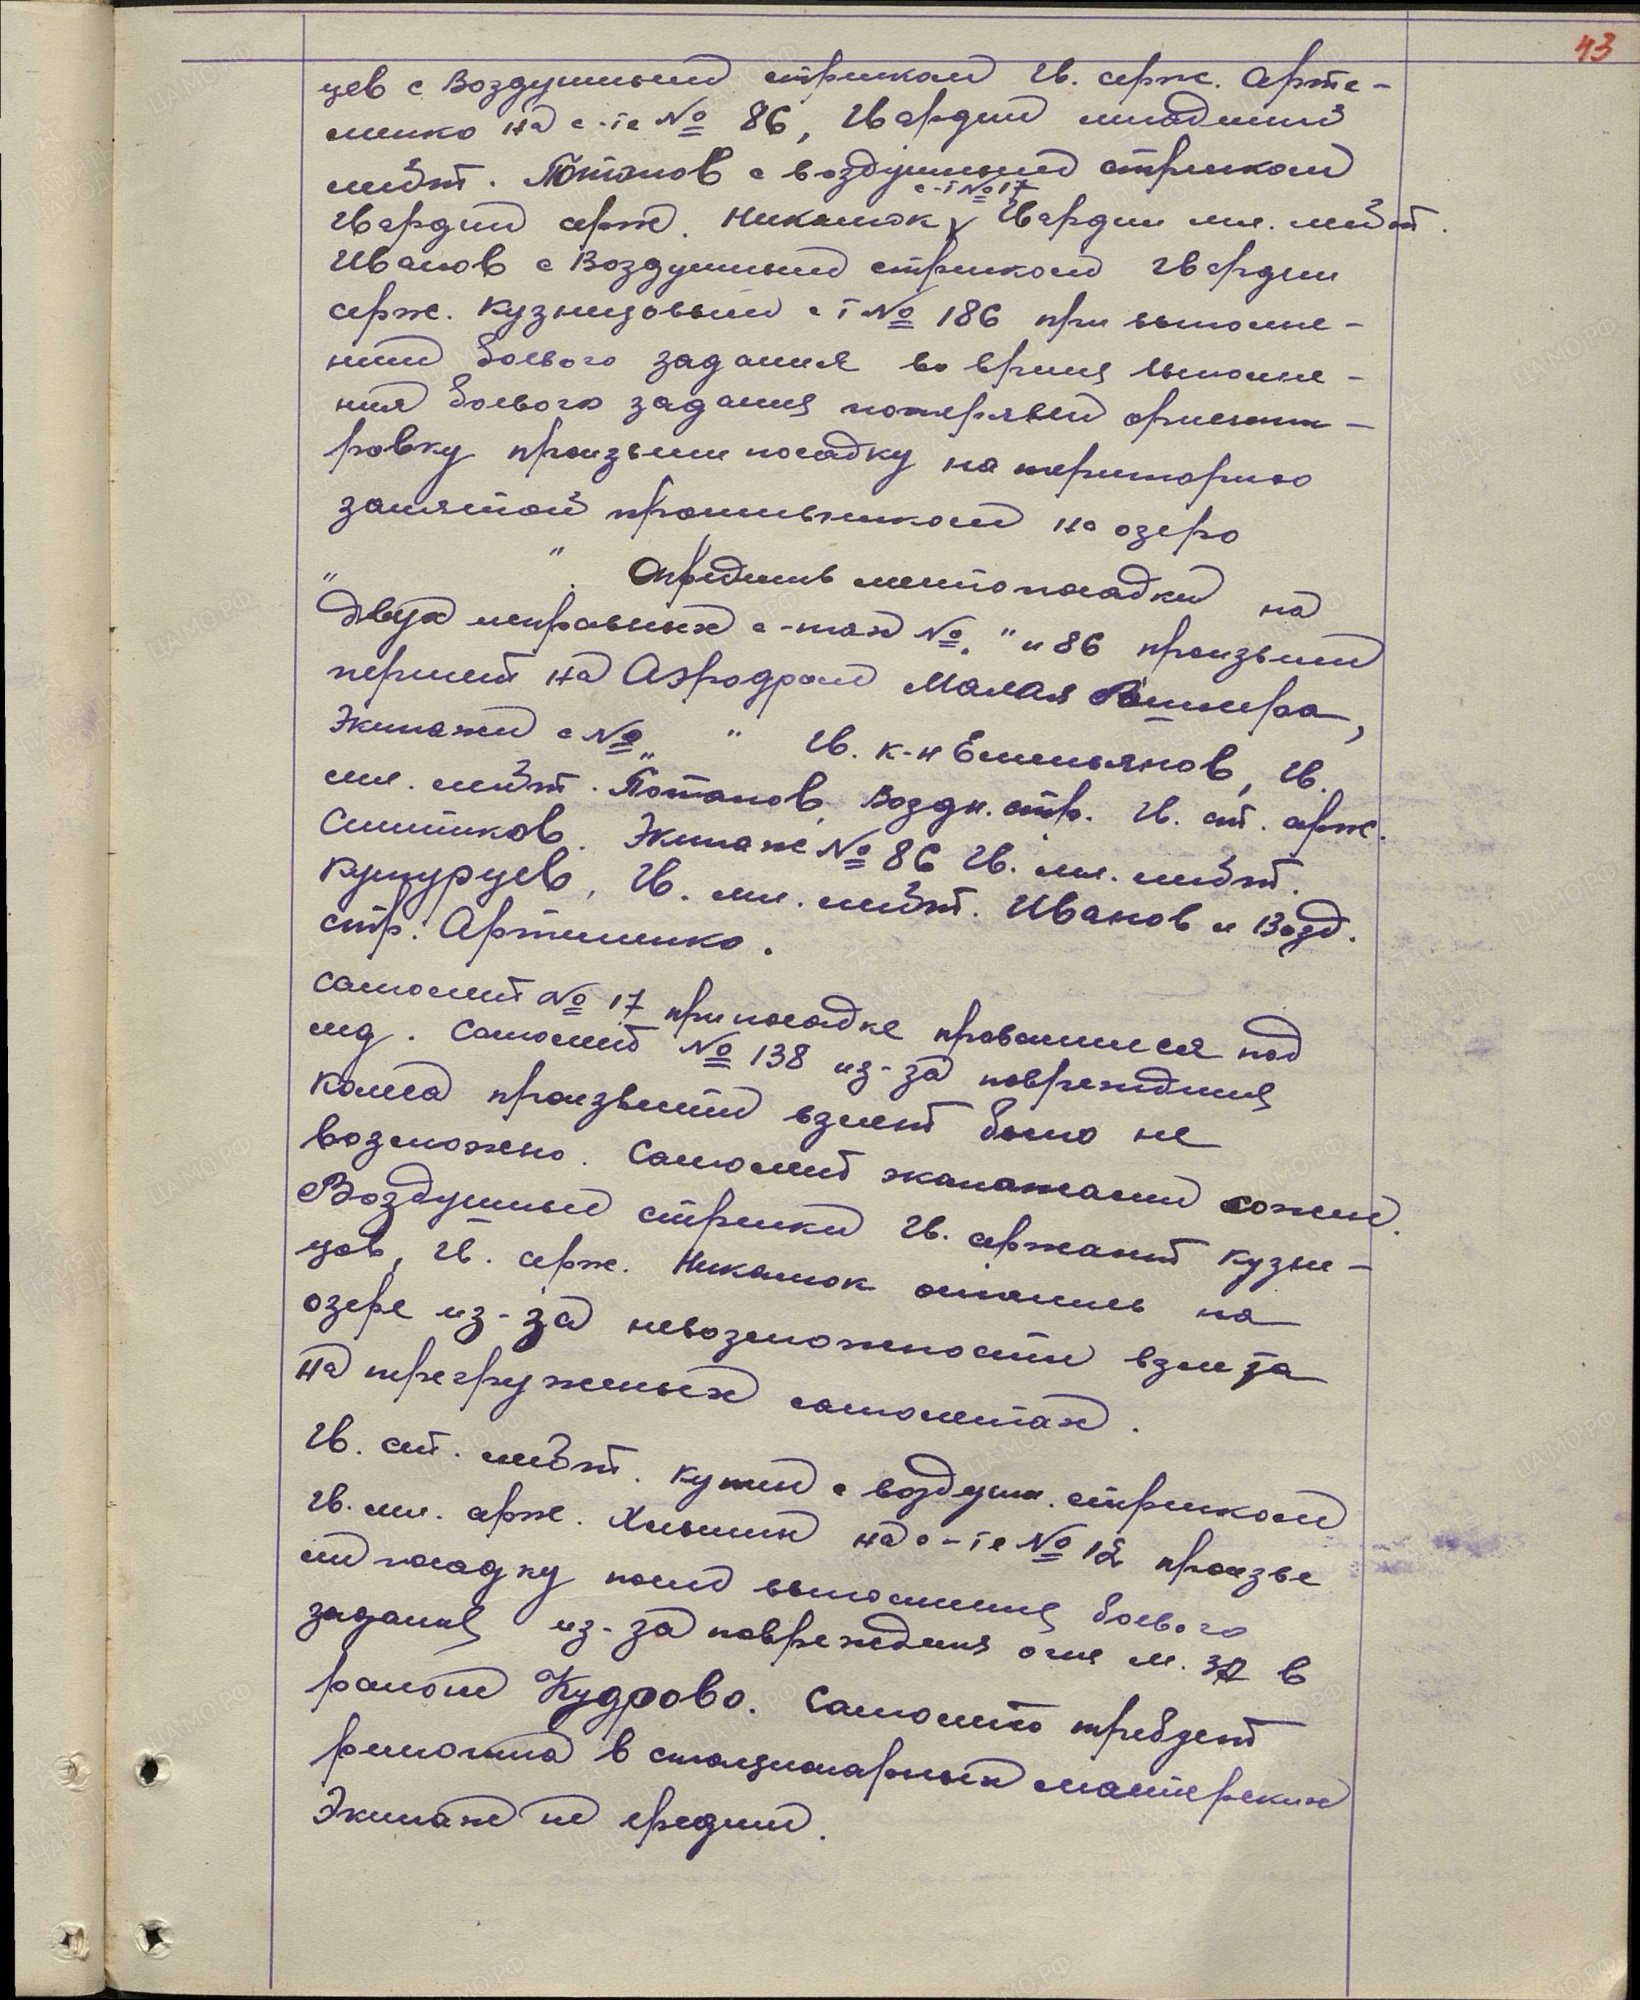 43
цев с Воздушным стрелком Гв. серж. Арте-
менко на с-те № 86, Гвардии младший
лейт. Потапов с воздушным стрелком
с-т № 17
Гвардии серж. Никалюк, Гвардии мл. лейт.
Иванов с Воздушным стрелком гвардии
серж. Кузнецовым с-т № 186 при выполне-
нии боевого задания во время выполне-
ния боевого задания потеряли ориенти-
ровку произвели посадку на територию
занятой противником на озеро
" ". Определив место посадки на
двух исправных с-тах № " и 86 произвели
перелет на Аэродром Малая Вишера,
Экипажи с № " " Гв. к-н Емельянов, Гв.
мл. лейт. Потапов, Воздн. стр. Гв. ст. серж.
Ситников. Экипаж № 86 Гв. мл. лейт.
Кукурузев, Гв. мл. лейт. Иванов и Возд.
стр. Артеменко.
Самолет № 17 при посадке провалился под
лед. Самолет № 138 из-за повреждения
колеса произвести взлет было не
возможно. Самолет экипажами сожен.
Воздушные стрелки Гв. сержант Кузне-
цов, Гв. серж. Никалюк остались на
озере из-за невозможности взлета
на перегруженых самолетах.
Гв. ст. лейт. Кутей с воздушн. стрелком
Гв. мл. серж. Хлынин на с-те № 12 произве
ли посадку после выполнения боевого
задания из-за повреждения огнем ЗА в
районе Кудрово. Самолет требует
ремонта в стационарных мастерских
Экипаж не вредим.